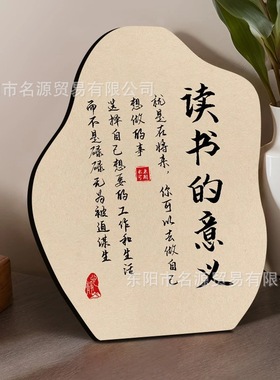 读书的意义
就是在将来，你可以去做自己
想做的事
选择自己想要的工作和生活
而不是碌碌无为被迫谋生
东阳市名源贸易有限公司
东阳市名源贸易有限公司